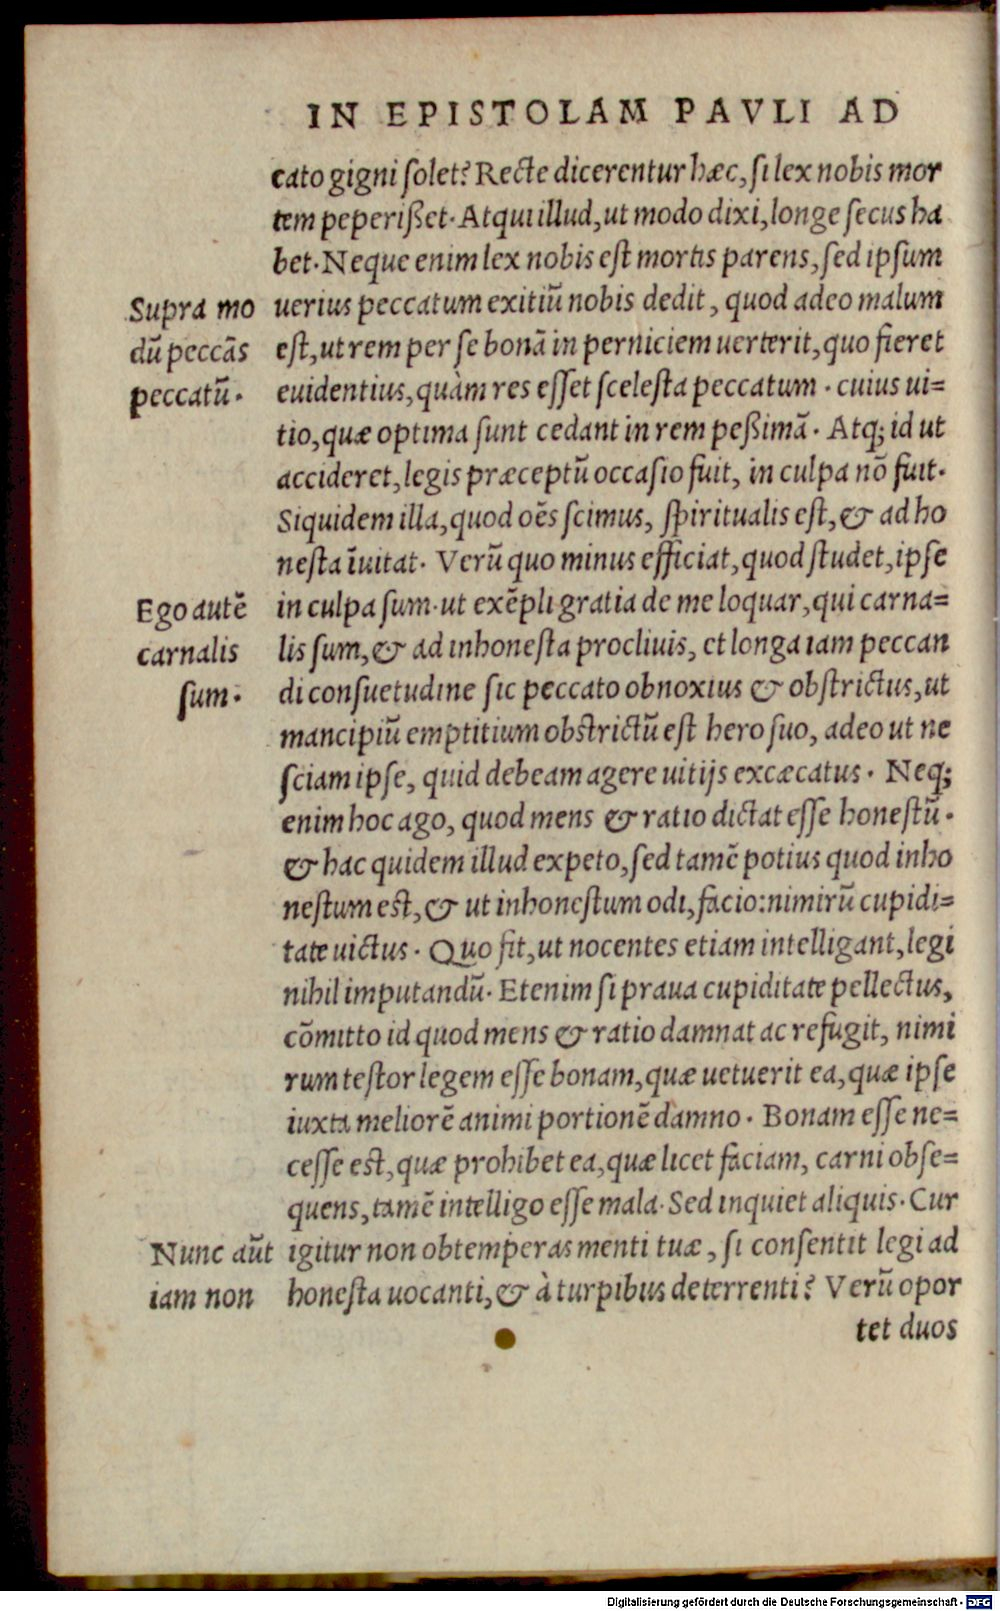 IN EPISTOLAM PAVLI AD
cato gigni solet? Recte dicerentur hæc, si lex nobis mor
tem peperißet. Atqui illud, ut modo dixi, longe secus ha
bet. Neque enim lex nobis est mortis parens, sed ipsum
Supra mo
uerius peccatum exitiũ nobis dedit, quod adeo malum
dũ peccãs
est, ut rem per se bonã in perniciem uerterit, quo fieret
peccatũ.
euidentius, quàm res esset scelesta peccatum. cuius ui=
tio, quæ optima sunt cedant in rem peßimã. Atq; id ut
accideret, legis præceptũ occasio fuit, in culpa nõ fuit.
Siquidem illa, quod oẽs scimus, spiritualis est, & ad ho
nesta ĩuitat. Verũ quo minus efficiat, quod studet, ipse
Ego autẽ
in culpa sum. ut exẽpli gratia de me loquar, qui carna=
carnalis
lis sum, & ad inhonesta procliuis, et longa iam peccan
sum.
di consuetudine sic peccato obnoxius & obstrictus, ut
mancipiũ emptitium obstrictũ est hero suo, adeo ut ne
sciam ipse, quid debeam agere uitijs excæcatus. Neq;
enim hoc ago, quod mens & ratio dictat esse honestũ.
& hac quidem illud expeto, sed tamẽ potius quod inho
nestum est, & ut inhonestum odi, facio: nimirũ cupidi=
tate uictus. Quo fit, ut nocentes etiam intelligant, legi
nihil imputandũ. Etenim si praua cupiditate pellectus,
cõmitto id quod mens & ratio damnat ac refugit, nimi
rum testor legem esse bonam, quæ uetuerit ea, quæ ipse
iuxta meliorẽ animi portionẽ damno. Bonam esse ne=
cesse est, quæ prohibet ea, quæ licet faciam, carni obse=
quens, tamẽ intelligo esse mala. Sed inquiet aliquis. Cur
Nunc aũt
igitur non obtemperas menti tuæ, si consentit legi ad
iam non
honesta uocanti, & à turpibus deterrenti? Verũ opor
tet duos
Digitalisierung gefördert durch die Deutsche Forschungsgemeinschaft - DFG